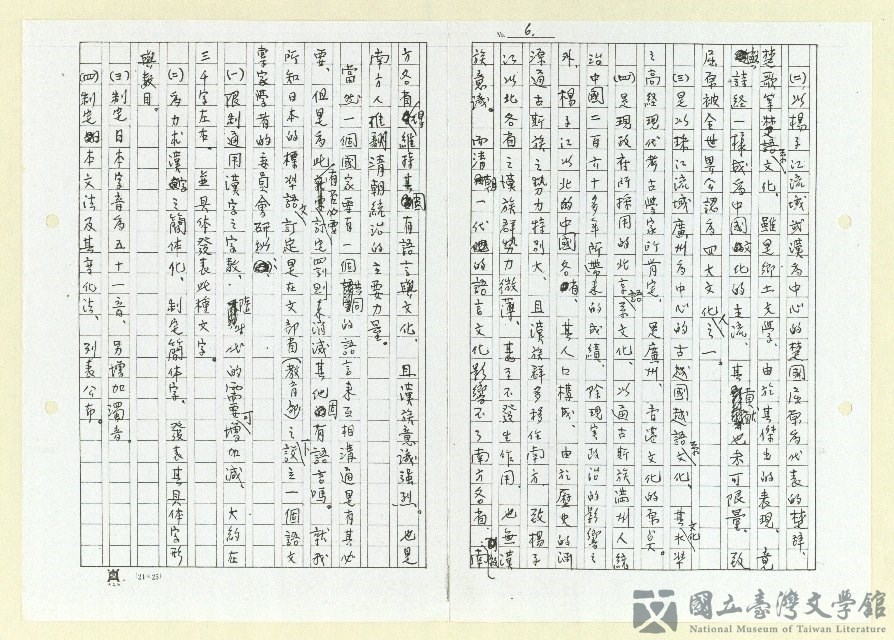 No. 6.
(二)以楊子江流域武漢為中心的楚國屈原為代表的楚辭、
楚歌等楚語系文化、雖是鄉土文學、由於其傑出的表現、竟
與詩經一樣成為中國文化的主流、其貢獻也未可限量、致
屈原被全世界公認為四大文化人之一。
(三)是以珠江流域廣州為中心的古越國越語系文化、其文化水準
之高經現代考古學家所肯定、是廣州、香港文化的第 。
(四)是現政府所採用的北京語系文化、以通古斯族滿州人統
治中國二百六十多年所帶來的成績、除現實政治的影響之
外、楊子江以北的中國各省、其人口構成、由於歷史的淵
源通古斯族之勢力特別大、且漢族群多移住南方、致楊子
江以北各省之漢族群勢力微薄、甚至不發生作用、也無漢
族意識。而清朝一代的語言文化影響不了南方各省、南
方各省得維持其固有語言與文化、且漢族意識強烈。也是
南方人推翻清朝統治的主要力量。
當然一個國家要有一個共同的語言來互相溝通是有其必
要、但是為此有否必要訂定罰則來消滅其他固有語言嗎。就我
所知日本的標準語文訂定是在文部省(教育部)之下設立一個語文
專家學者的委員會研訂:
(一)限制通用漢字之字數、隨時代的需要可增加減、大約在
三千字左右。並具体發表此種文字。
(二)為力求漢字之簡体化、制定簡体字、發表其具体字形
與數目。
(三)制定日本字音為五十一音、另增加濁音。
(四)制定日本文法及其變化法、列表公布。
(21×25)
國立臺灣文學館
National Museum of Taiwan Literature